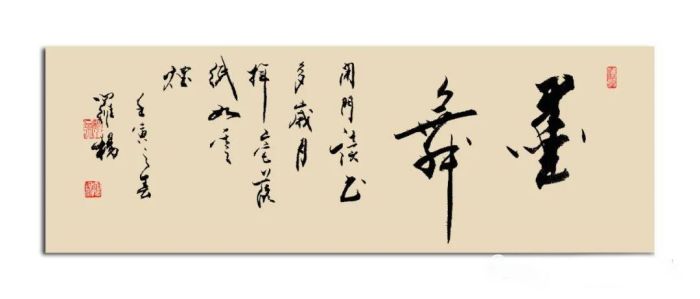 墨
舞
閉門讀书
多歲月
揮毫落
紙如雲
煙
壬寅之春
羅楊